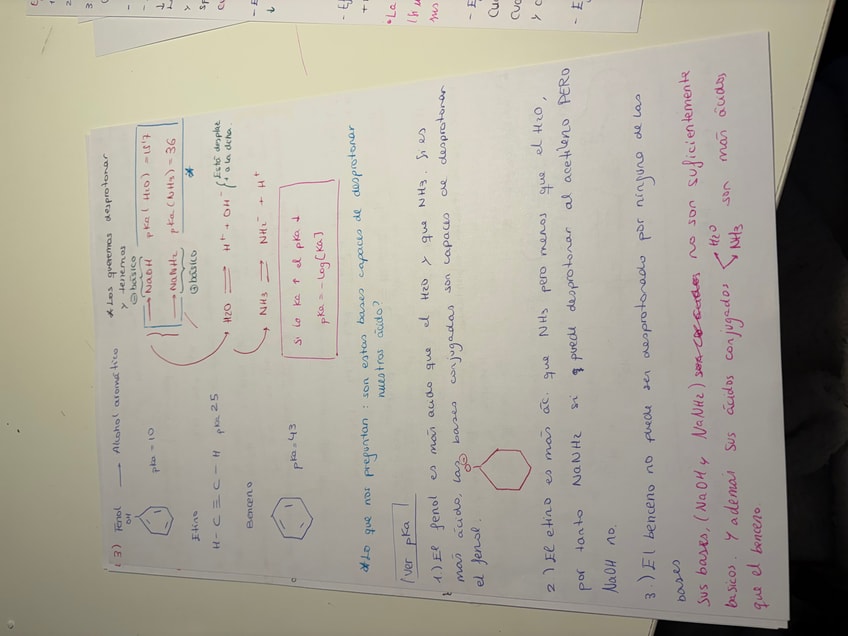 (3) Fenol → Alcohol aromático
OH
pka = 10
Etino
H - C ≡ C - H pka 25
Benceno
pka = 43
*Los queremos desprotonar
y tenemos
⊖básico
→ NaOH pka (H2O) = 15'7
→ NaNH2 pka (NH3) = 36
⊕básico *
H2O ⇌ H+ + OH-
Está despla
+ a la dcha.
NH3 ⇌ NH2- + H+
Si la Ka ↑ el pKa ↓
pKa = -log[Ka]
*Lo que nos preguntan: son estas bases capaces de desprotonar
nuestros ácido?
(Ver pKa)
1) El fenol es más ácido que el H2O y que NH3. Si es
más ácido, las bases conjugadas son capaces de desprotonar
el fenol.
2) El etino es más ác. que NH3 pero menos que el H2O,
por tanto NaNH2 si q puede desprotonar al acetileno PERO
NaOH no.
3.) El benceno no puede ser desprotonado por ninguna de las
bases
Sus bases, (NaOH y NaNH2) no son suficientemente
básicos. Y además sus ácidos conjugados H2O son más ácidos
NH3
que el benceno.